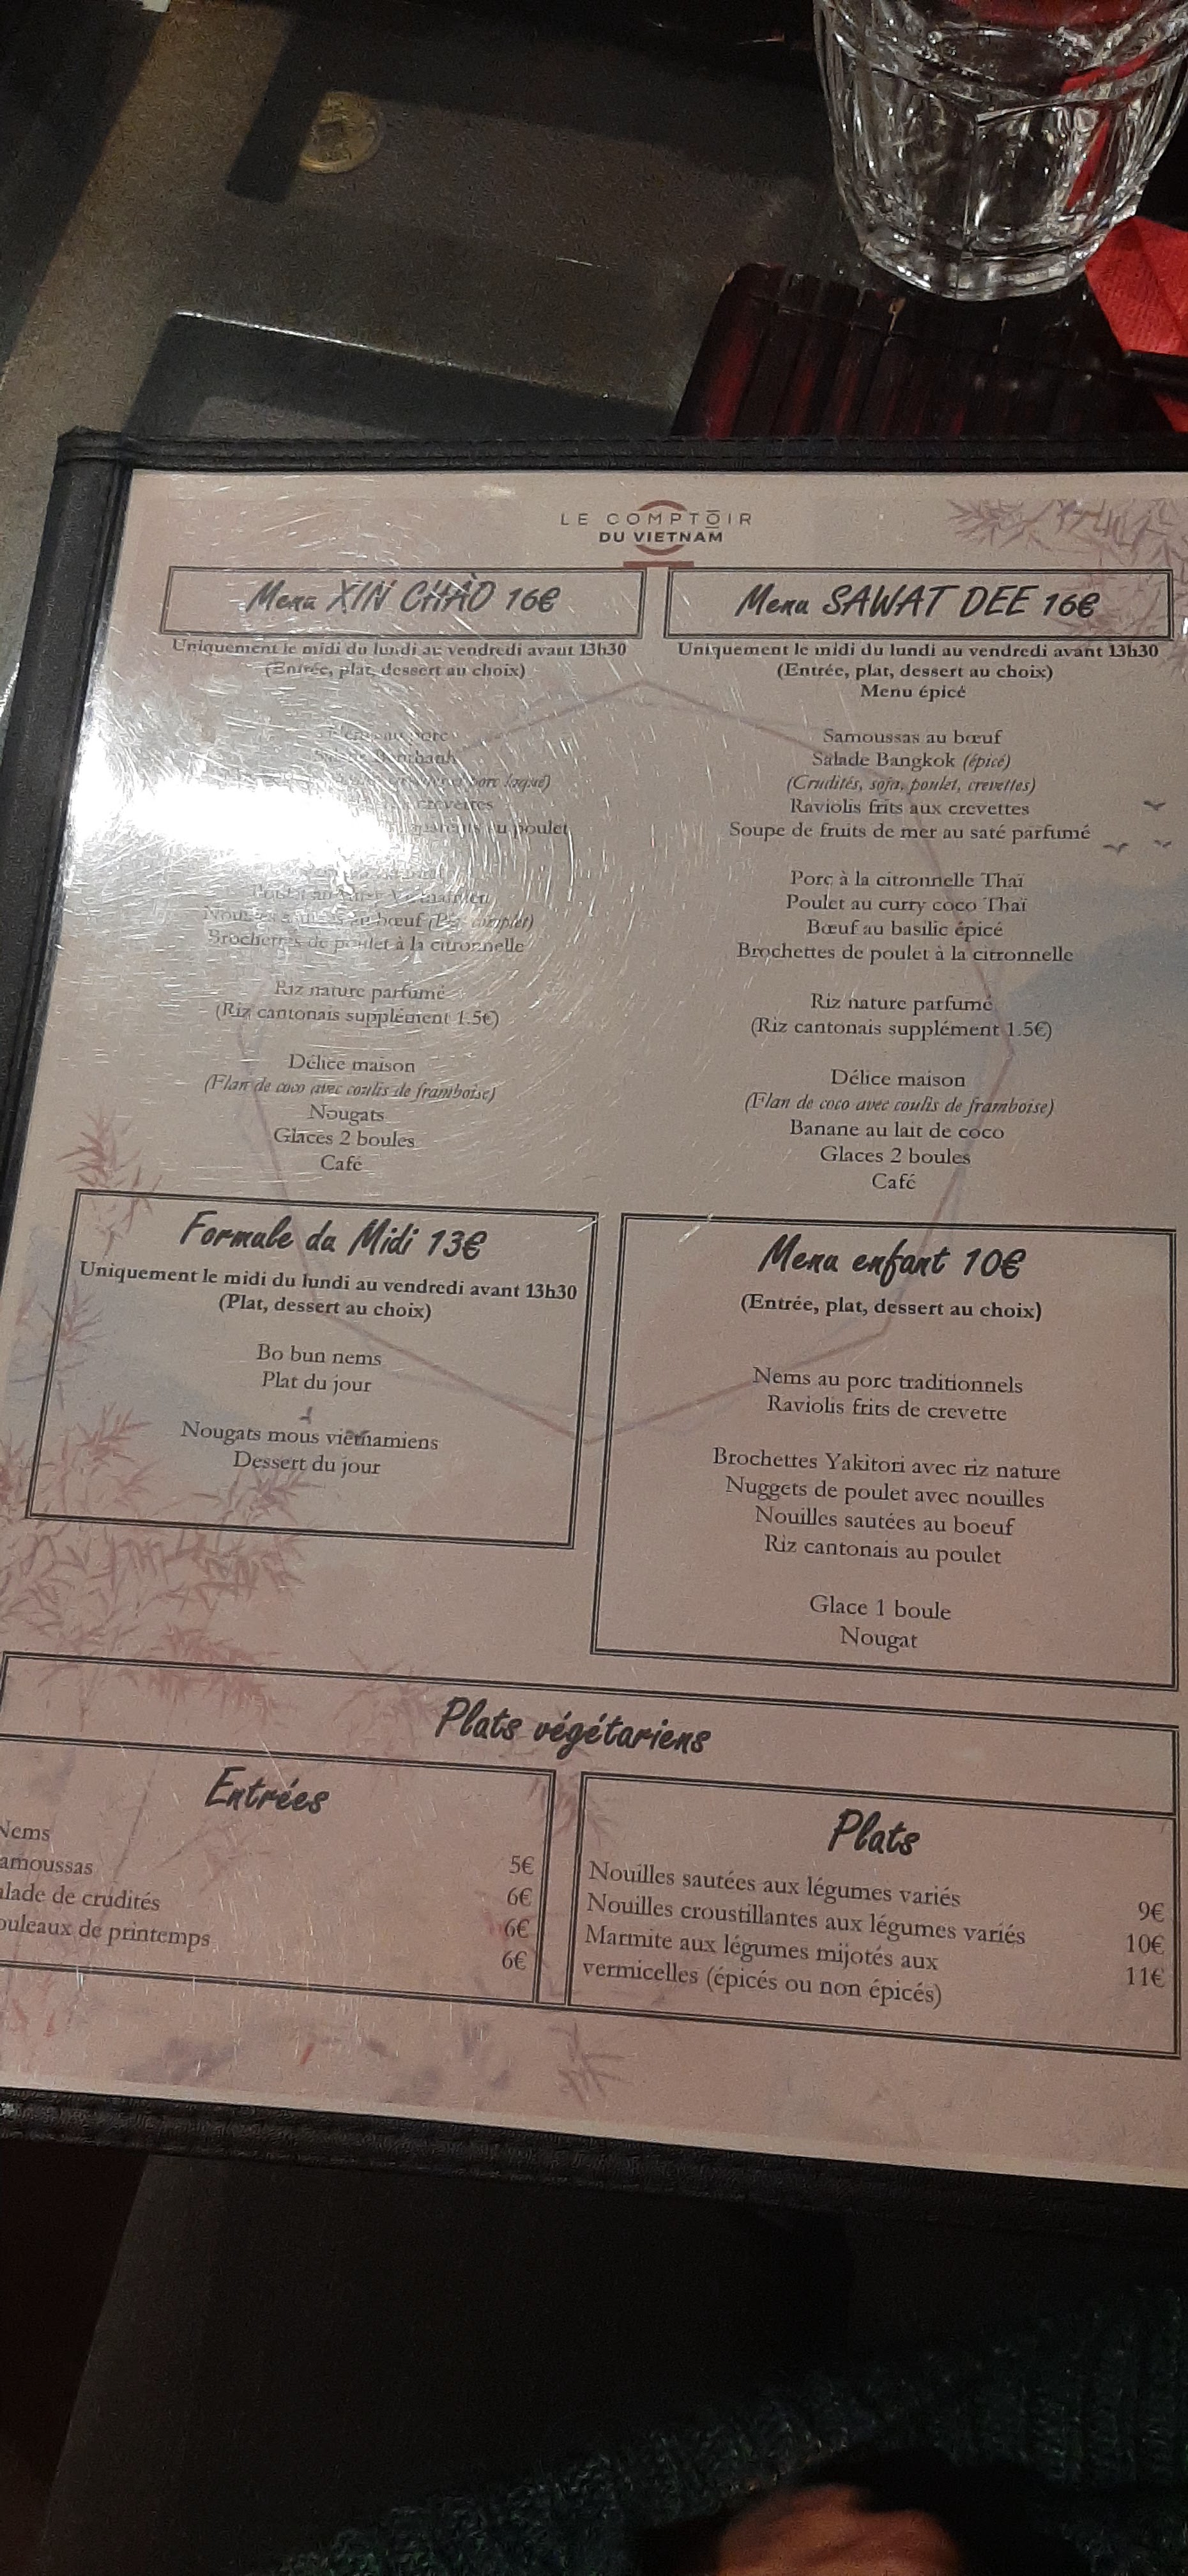 LE COMPTOIR
DU VIETNAM
Menu XIN CHÀO 16€
Uniquement le midi du lundi au vendredi avant 13h30
(Entrée, plat, dessert au choix)
porc
laqué)
crevettes
au poulet
au bœuf (Plat complet)
Brochettes de poulet à la citronnelle
Riz nature parfumé
(Riz cantonais supplément 1.5€)
Délice maison
(Flan de coco avec coulis de framboise)
Nougats
Glaces 2 boules
Café
Menu SAWAT DEE 16€
Uniquement le midi du lundi au vendredi avant 13h30
(Entrée, plat, dessert au choix)
Menu épicé
Samoussas au bœuf
Salade Bangkok (épicé)
(Crudités, soja, poulet, crevettes)
Raviolis frits aux crevettes
Soupe de fruits de mer au saté parfumé
Porc à la citronnelle Thaï
Poulet au curry coco Thaï
Bœuf au basilic épicé
Brochettes de poulet à la citronnelle
Riz nature parfumé
(Riz cantonais supplément 1.5€)
Délice maison
(Flan de coco avec coulis de framboise)
Banane au lait de coco
Glaces 2 boules
Café
Formule du Midi 13€
Uniquement le midi du lundi au vendredi avant 13h30
(Plat, dessert au choix)
Bo bun nems
Plat du jour
Nougats mous vietnamiens
Dessert du jour
Menu enfant 10€
(Entrée, plat, dessert au choix)
Nems au porc traditionnels
Raviolis frits de crevette
Brochettes Yakitori avec riz nature
Nuggets de poulet avec nouilles
Nouilles sautées au boeuf
Riz cantonais au poulet
Glace 1 boule
Nougat
Plats végétariens
Entrées
Nems 5€
amoussas 6€
alade de crudités 6€
ouleaux de printemps 6€
Plats
Nouilles sautées aux légumes variés 9€
Nouilles croustillantes aux légumes variés 10€
Marmite aux légumes mijotés aux 11€
vermicelles (épicés ou non épicés)